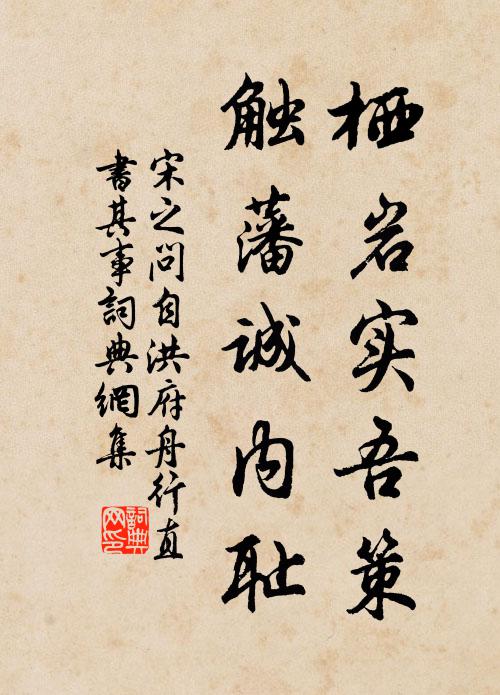 栖岩实吾策
触藩诚内耻
宋之问自洪府舟行直
書其事詞典網集
詞典网印